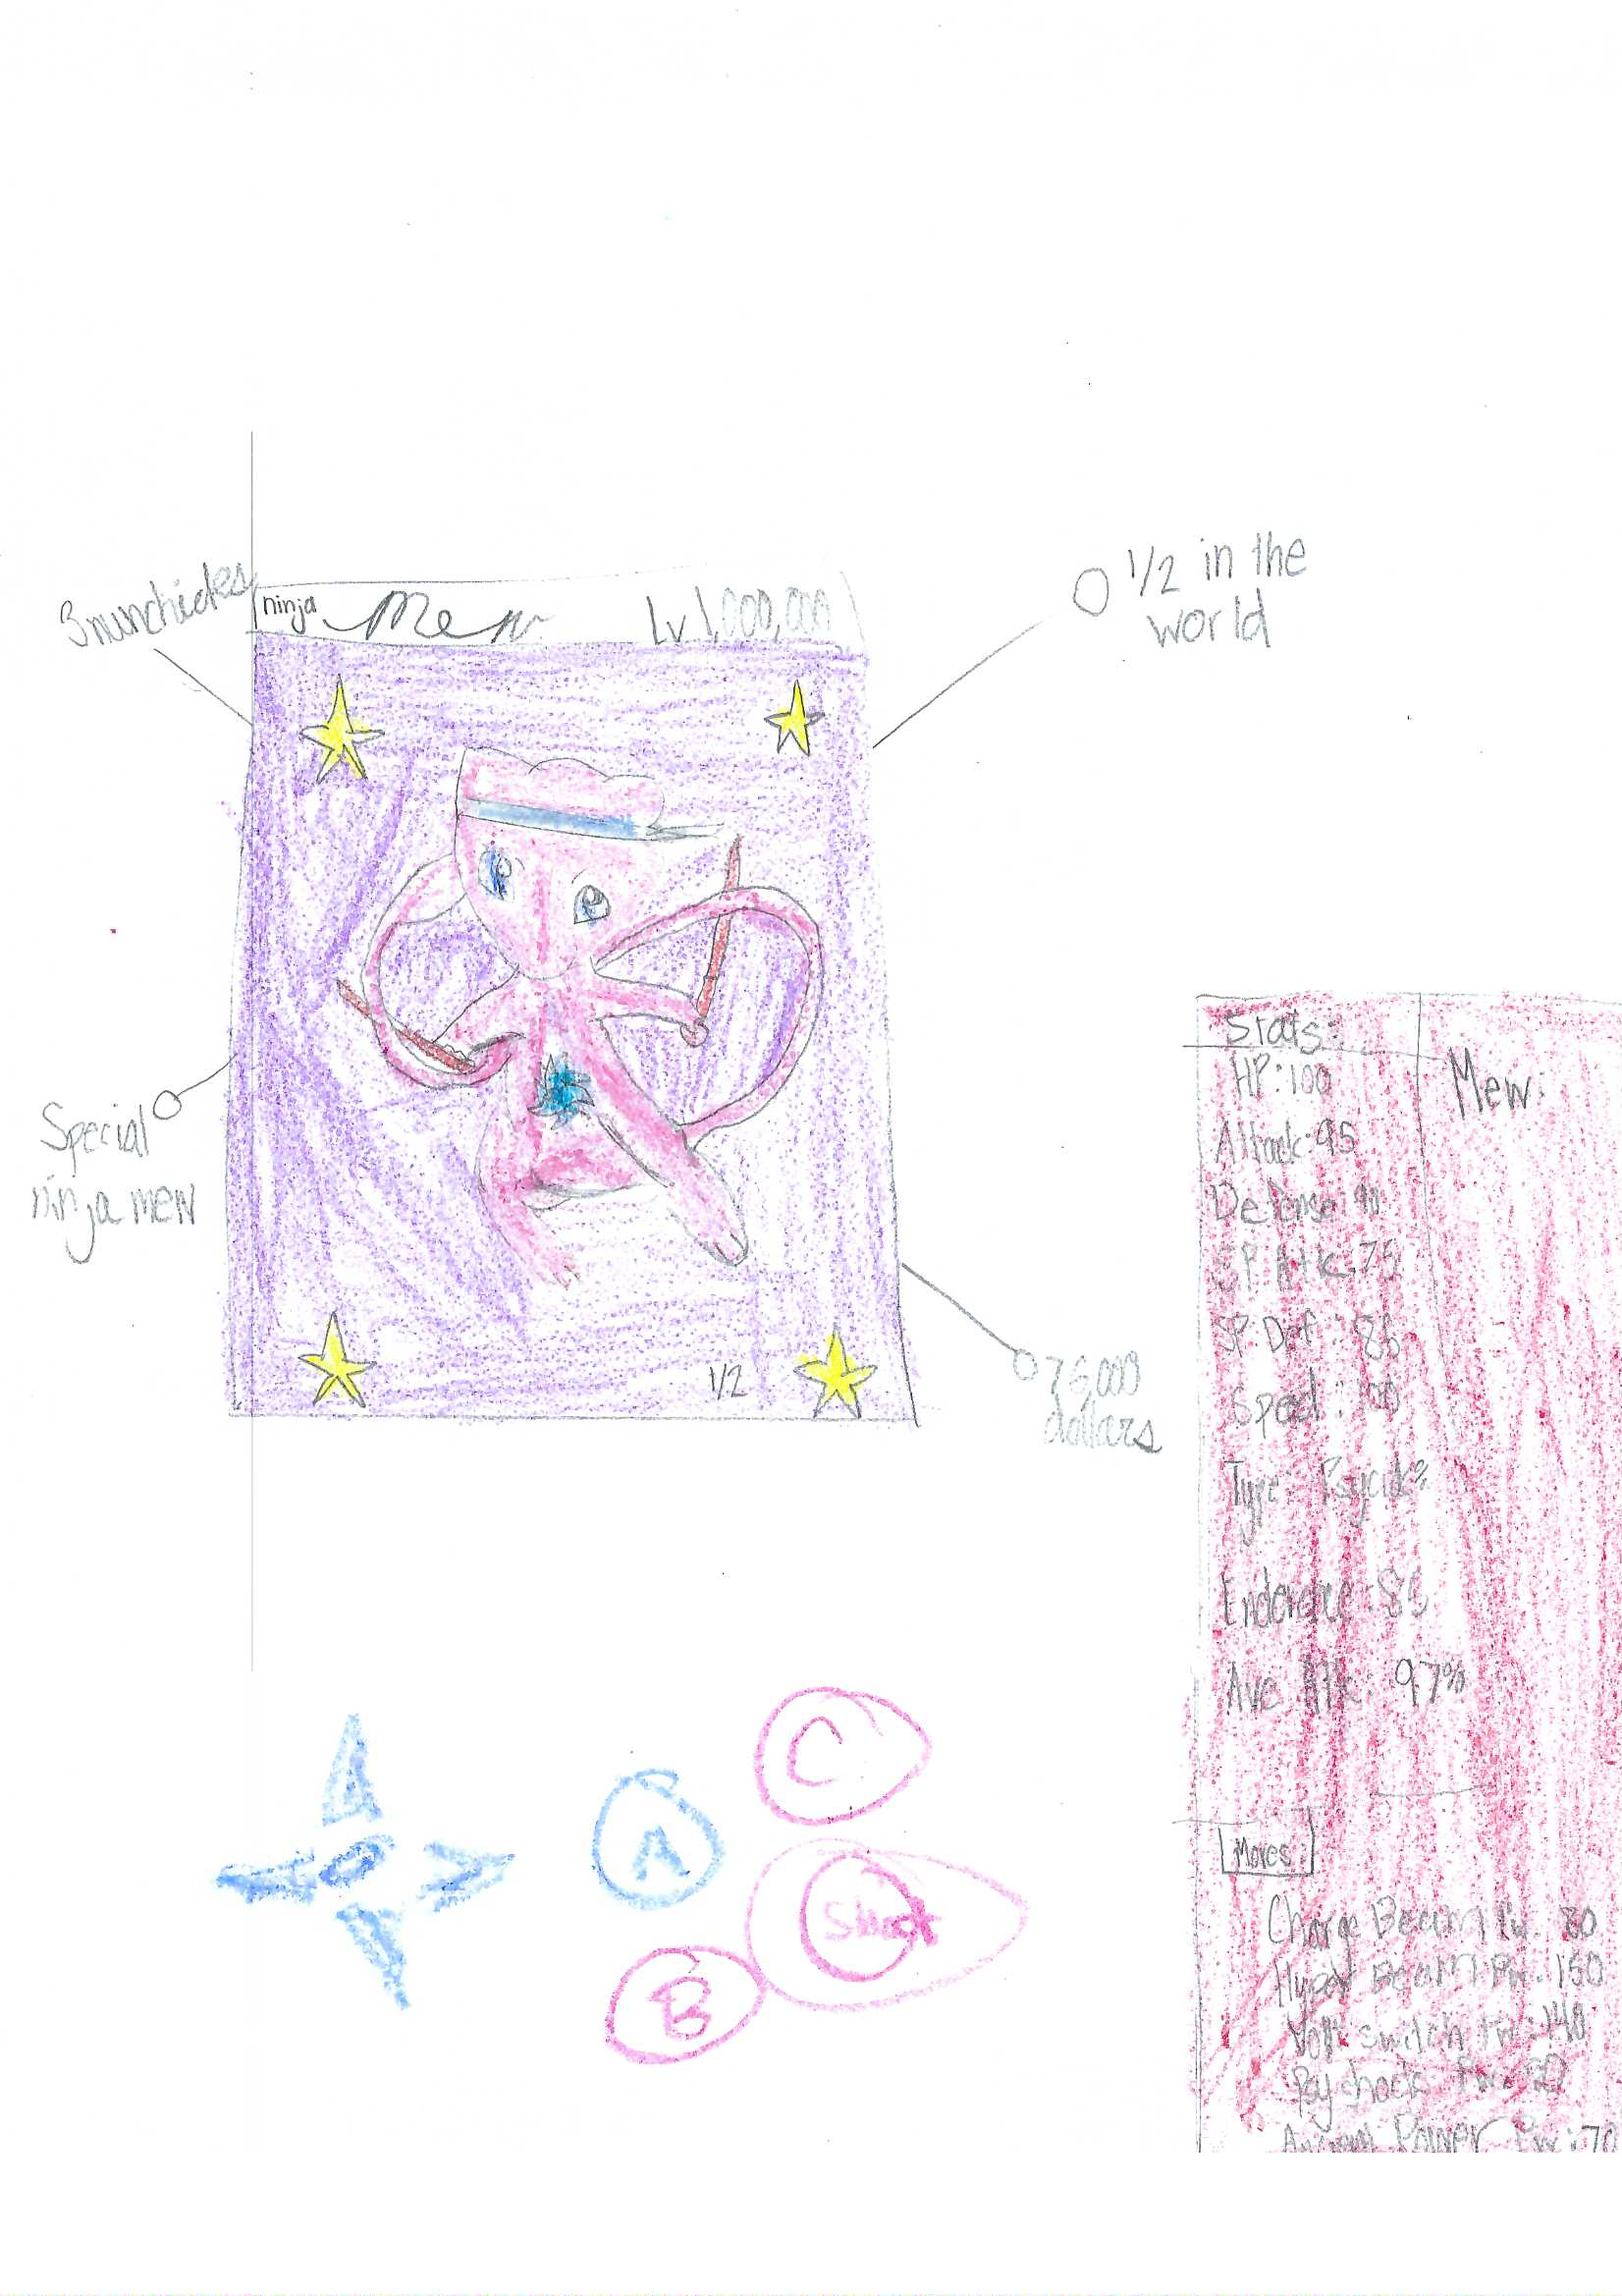 3 nunchickes
ninja Mew Lv 1,000,000
1/2 in the
world
Special
ninja mew
1/2
75,000
dollars
Stats:
HP:100
Mew:
Attack:95
Defense:90
SP Atk:75
SP Def:
Speed: 100
Type:
Enderence:85
Ave Atk. 97%
Moves:
Charge Beam Pw. 80
Hyper Beam Pw. 150
Volt switch Pw:140
Pyshock Pw:
Power Pw:70
A
C
Start
B